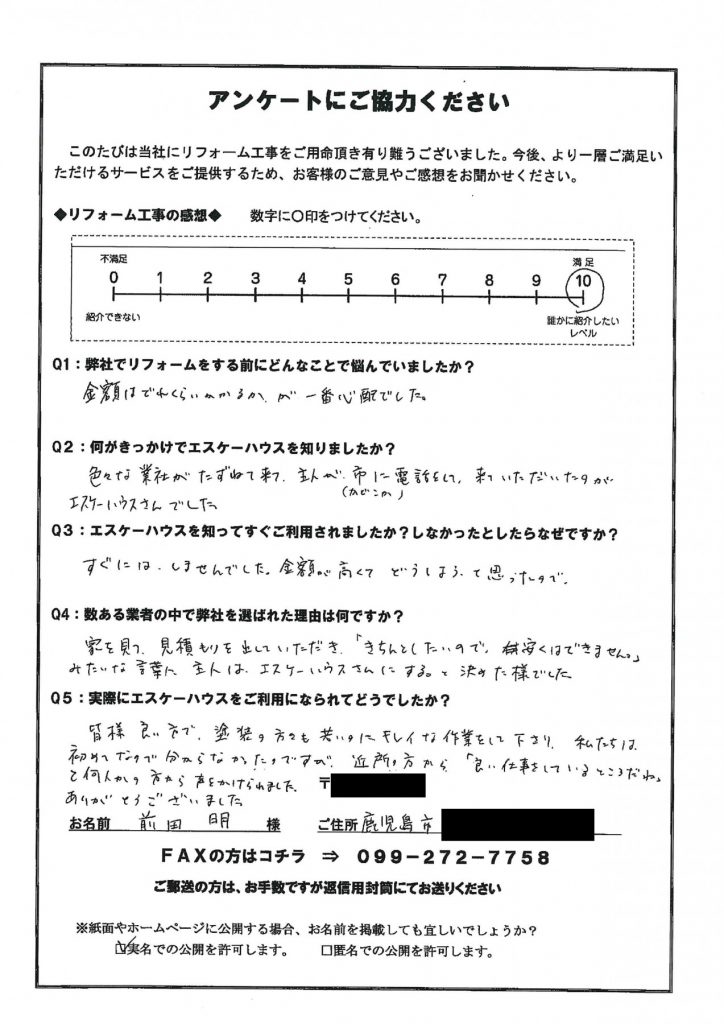 アンケートにご協力ください
このたびは当社にリフォーム工事をご用命頂き有り難うございました。今後、より一層ご満足い
ただけるサービスをご提供するため、お客様のご意見やご感想をお聞かせください。
◆リフォーム工事の感想◆ 数字に〇印をつけてください。
不満足 満足
0 1 2 3 4 5 6 7 8 9 10
紹介できない 誰かに紹介したい
レベル
Q1：弊社でリフォームをする前にどんなことで悩んでいましたか？
金額はどれくらいかかるか、が一番心配でした。
Q2：何がきっかけでエスケーハウスを知りましたか？
色々な業社がたずねて来て、主人が、市に電話をして、来ていただいたのが
(かどこか)
エスケーハウスさんでした
Q3：エスケーハウスを知ってすぐご利用されましたか？しなかったとしたらなぜですか？
すぐには、しませんでした。金額が高くてどうしようって思ったので、
Q4：数ある業者の中で弊社を選ばれた理由は何ですか？
家を見て、見積もりを出していただき、「きちんとしたいので、安くはできません。」
みたいな言葉に主人は、エスケーハウスさんにする。と決めた様でした
Q5：実際にエスケーハウスをご利用になられてどうでしたか？
皆様良い方で、塗装の方々も若いのにキレイな作業をして下さり、私たちは、
初めてなので分からなかったのですが、近所の方から、「良い仕事をしているところだね」
と何人かの方から声をかけられました。 〒
ありがとうございました
お名前 前田 明 様 ご住所 鹿児島市
FAXの方はコチラ ⇒ 099-272-7758
ご郵送の方は、お手数ですが返信用封筒にてお送りください
※紙面やホームページに公開する場合、お名前を掲載しても宜しいでしょうか？
☑実名での公開を許可します。 □匿名での公開を許可します。